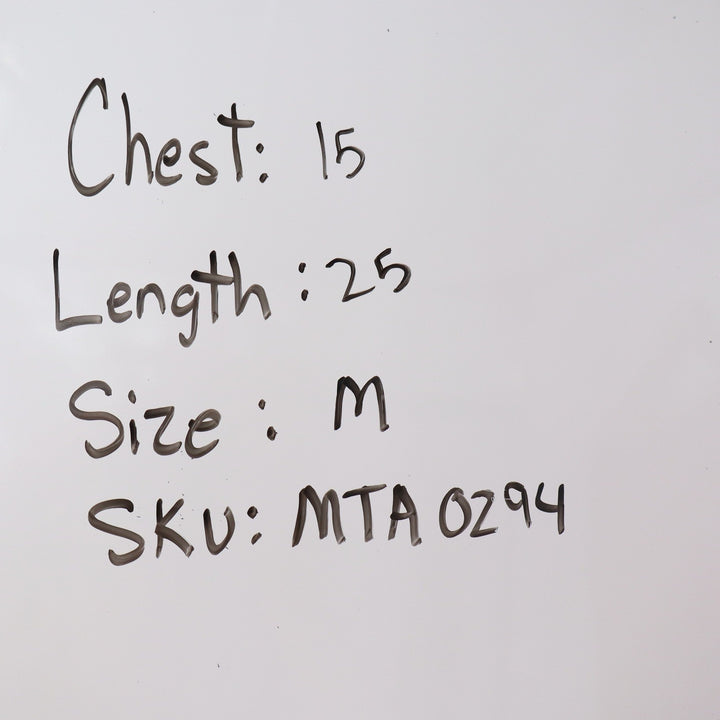 Chest: 15
Length: 25
Size: M
SKU: MTA 0294